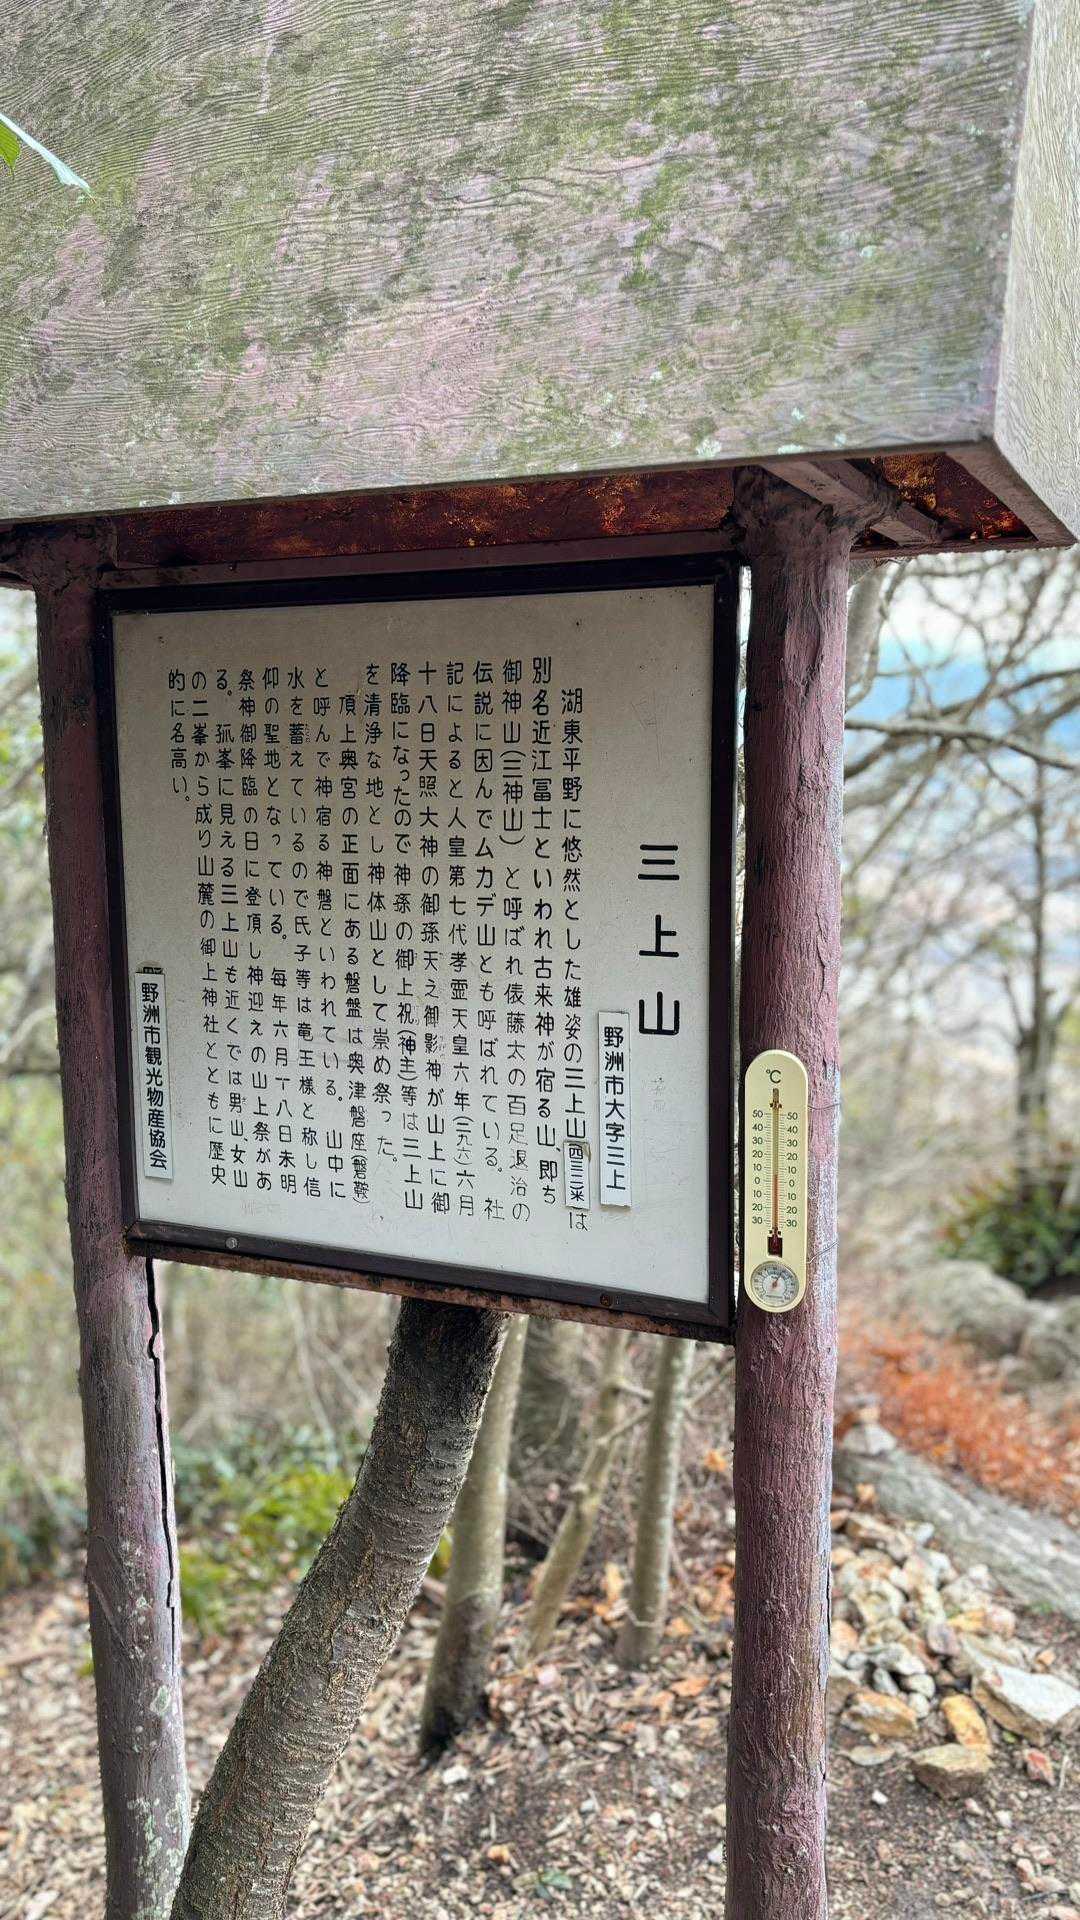 三上山
野洲市大字三上
湖東平野に悠然とした雄姿の三上山(四三二米)は
別名近江冨士といわれ古来神が宿る山、即ち
御神山(三神山)と呼ばれ俵藤太の百足退治の
伝説に因んでムカデ山とも呼ばれている。社
記によると人皇第七代孝霊天皇六年(三九六)六月
十八日天照大神の御孫天之御影神が山上に御
降臨になったので神孫の御上祝(神主)等は三上山
を清浄な地とし神体山として崇め祭った。
頂上奥宮の正面にある磐盤は奥津磐座(磐鞍)
と呼んで神宿る神磐といわれている。山中に
水を蓄えているので氏子等は竜王様と称し信
仰の聖地となっている。毎年六月十八日未明
祭神御降臨の日に登頂し神迎えの山上祭があ
る。孤峯に見える三上山も近くでは男山、女山
の二峯から成り山麓の御上神社とともに歴史
的に名高い。
野洲市観光物産協会
℃
50 50
40 40
30 30
20 20
10 10
0 0
10 10
20 20
30 30